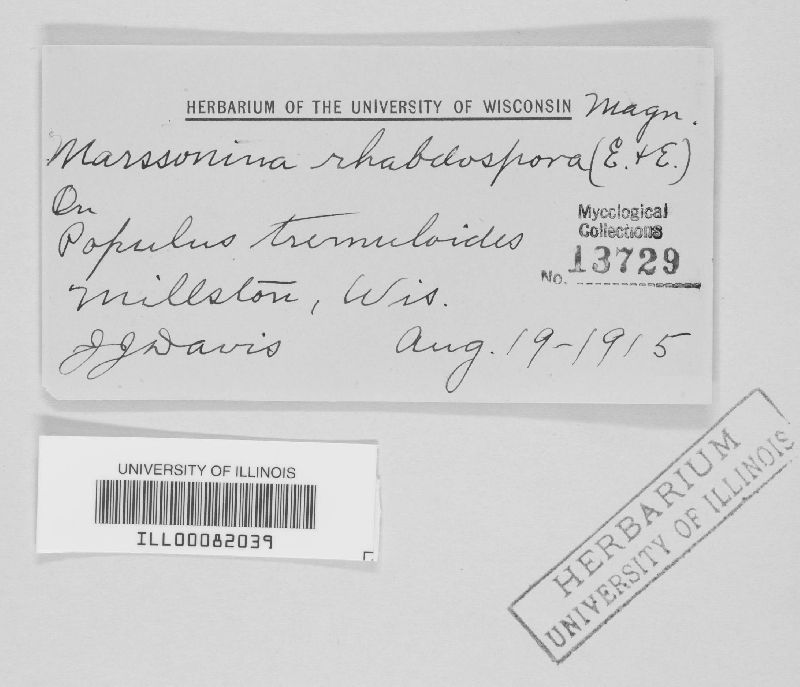 HERBARIUM OF THE UNIVERSITY OF WISCONSIN Magn.
Marssonina rhabdospora (E. & E.)
On
Populus tremuloides
Mycological
Collections
No. 13729
Millston, Wis.
JJDavis Aug. 19-1915
UNIVERSITY OF ILLINOIS
ILL00082039
HERBARIUM
UNIVERSITY OF ILLINOIS